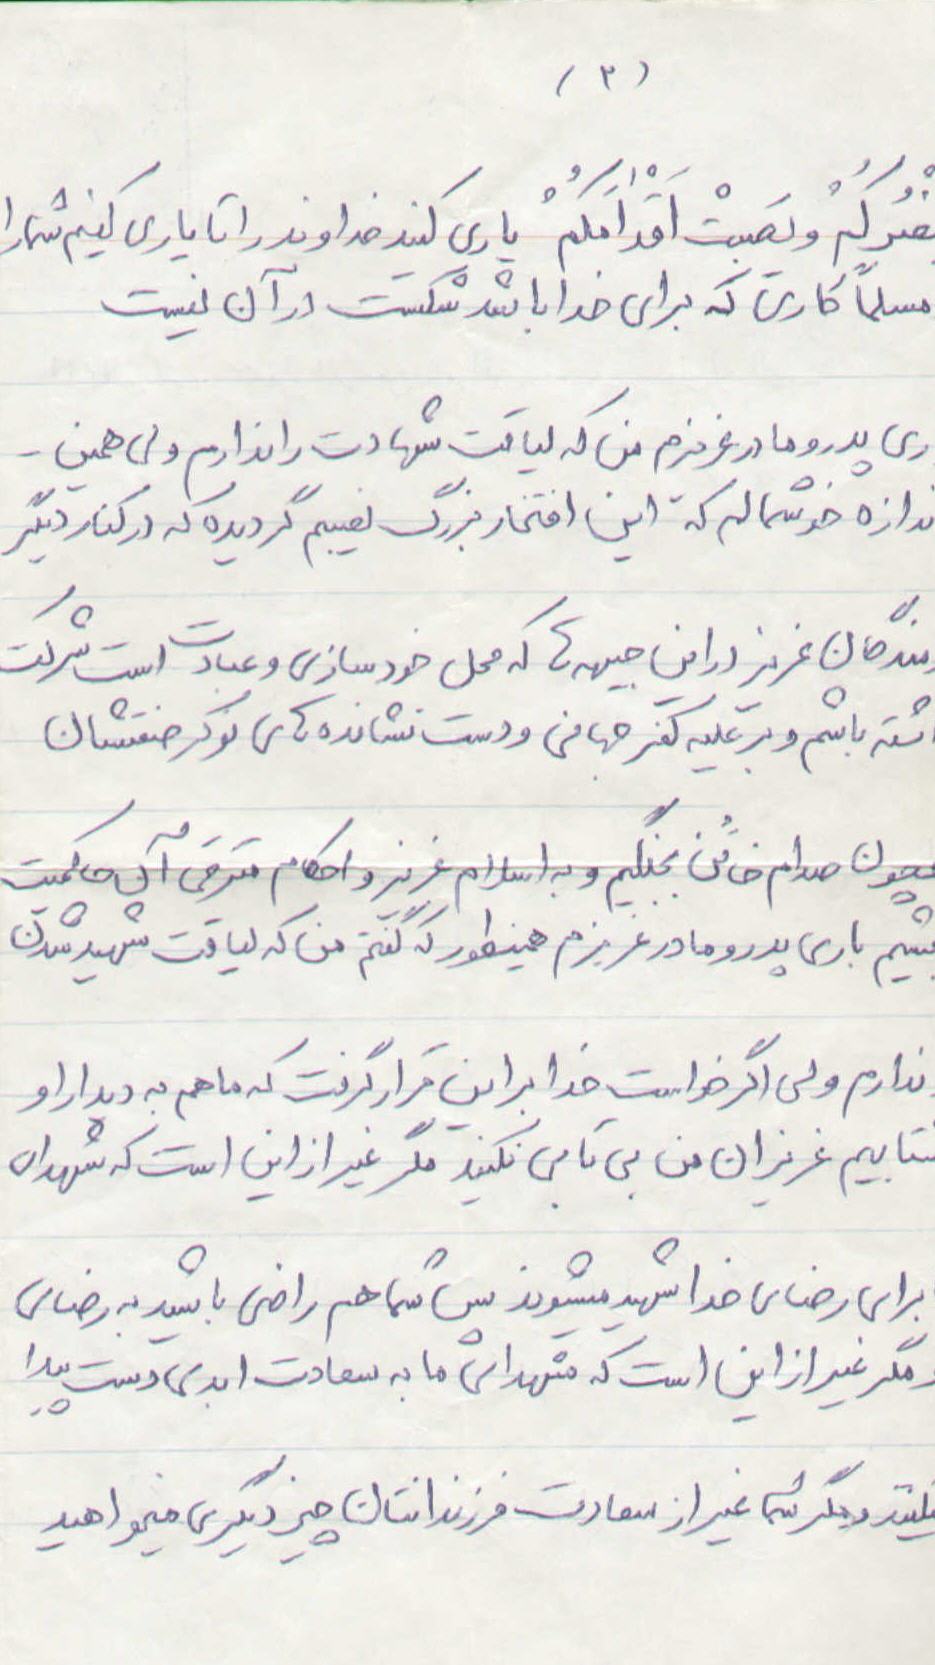 (۲)
یَنْصُرْکُمْ وَ یُصَبِتْ اَقْدٰامَکُمْ یاری کنید خداوند را تا یاری کنیم شما را
مسلماً کاری که برای خدا باشد شکست در آن نیست
ری پدر و مادر عزیزم من که لیاقت شهادت را ندارم ولی همین -
ندازه خوشحالم که این افتخار بزرگ نصیبم گردیده که در کنار دیگر
مندگان عزیز در این جبهه ها که محل خودسازی و عبادت است شرکت
اشته باشم و بر علیه کفر جهانی و دست نشانده های نوکر صفتشان
همچون صدام خائن بجنگیم و به اسلام عزیز و احکام مترقی آن حاکمیت
بخشیم باری پدر و مادر عزیزم همینطور که گفتم من که لیاقت شهید شدن
ندارم ولی اگر خواست خدا بر این قرار گرفت که ما هم به دیدار او
بشتابیم عزیزان من بی تابی نکنید مگر غیر از این است که شهدای
برای رضای خدا شهید میشوند پس شما هم راضی باشید به رضای
و مگر غیر از این است که شهدای ما به سعادت ابدی دست پیدا
میکنند و مگر شما غیر از سعادت فرزندانتان چیز دیگری میخواهید